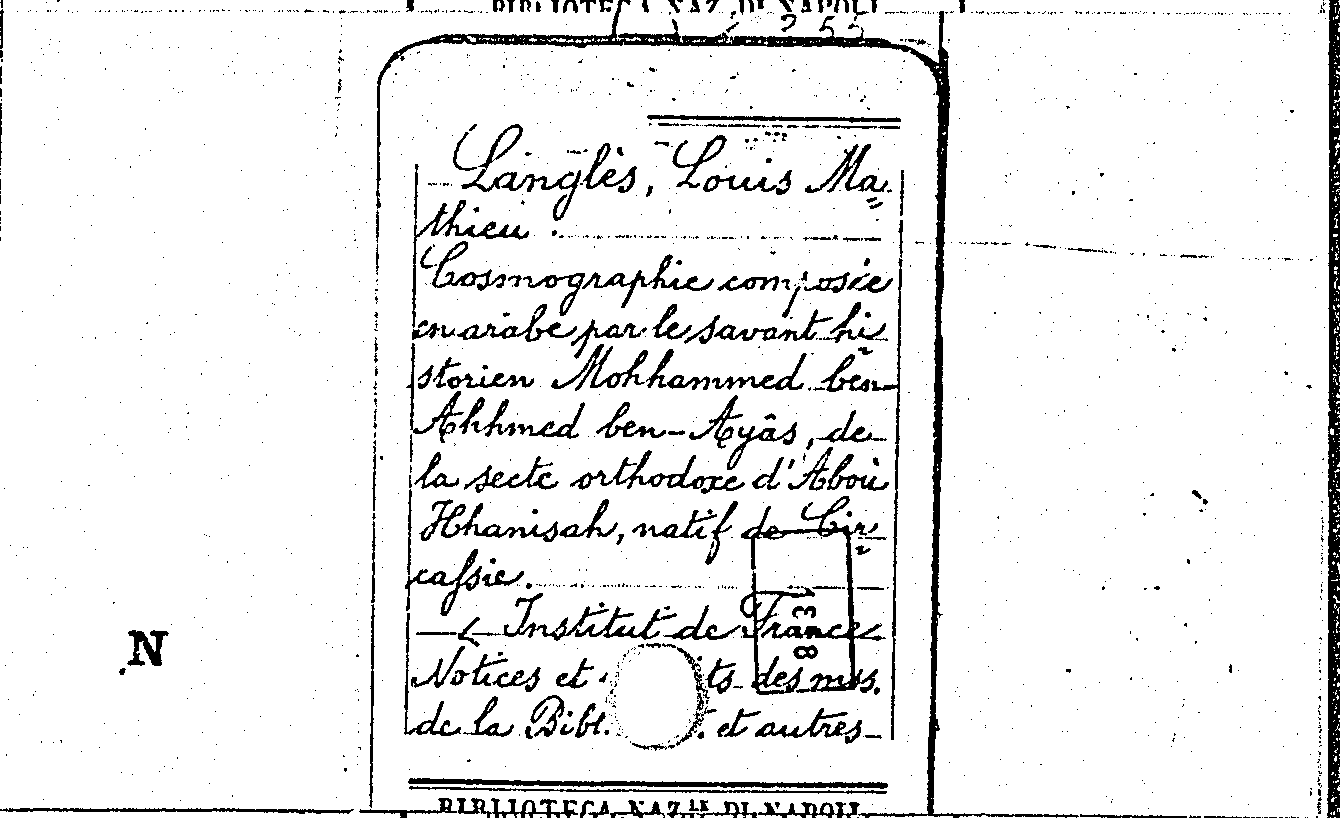 BIBLIOTECA NAZ. DI NAPOLI
255
Langlès, Louis Ma=
thieu.
Cosmographie composée
en arabe par le savant hi=
storien Mohhammed ben-
Ahhmed ben-Ayâs, de
la secte orthodoxe d'Aboù
Hhanisah, natif de Cir=
cassie.
Institut de France
Notices et ts des mss.
de la Bibl. et autres
831
N
BIBLIOTECA NAZ.LE DI NAPOLI